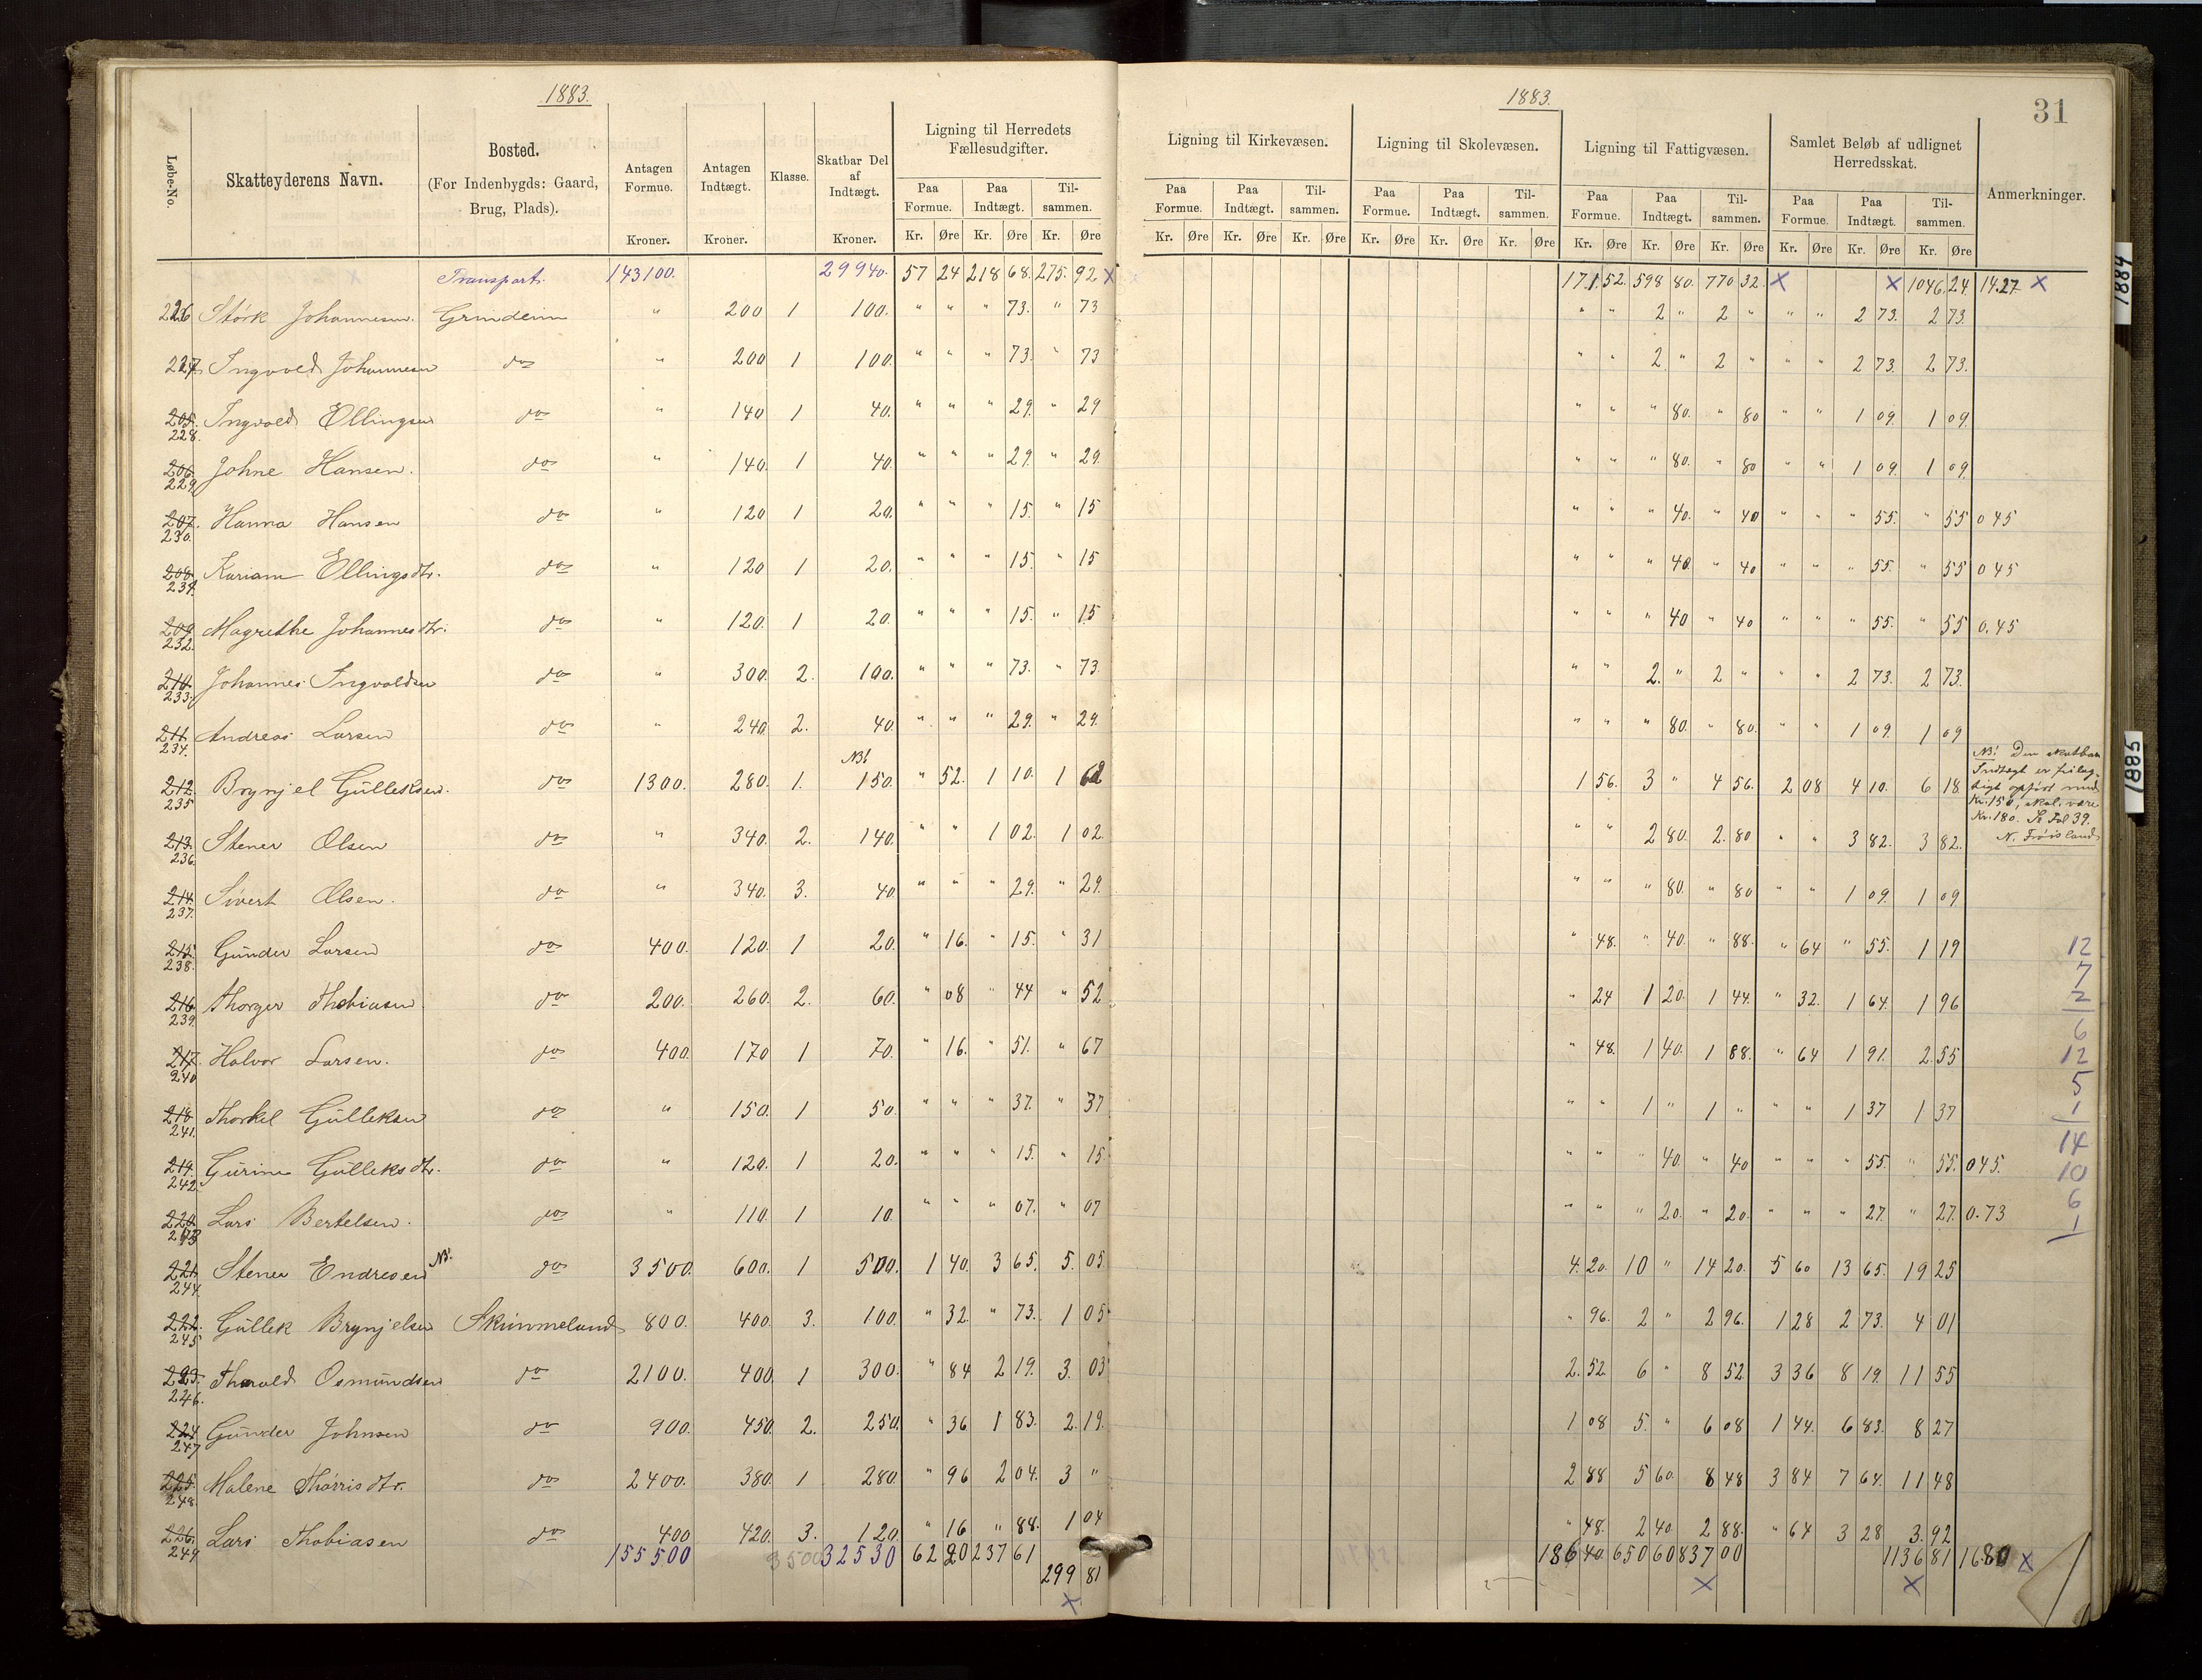 1883.
1883.
31
Løbe-No. Skatteyderens Navn. Bosted. (For Indenbygds: Gaard, Brug, Plads). Antagen Formue. Kroner. Antagen Indtægt. Kroner. Klasse. Skatbar Del af Indtægt. Kroner. Ligning til Herredets Fællesudgifter. Paa Formue. Kr. Øre Paa Indtægt. Kr. Øre Tilsammen. Kr. Øre Ligning til Kirkevæsen. Paa Formue. Kr. Øre Paa Indtægt. Kr. Øre Tilsammen. Kr. Øre Ligning til Skolevæsen. Paa Formue. Kr. Øre Paa Indtægt. Kr. Øre Tilsammen. Kr. Øre Ligning til Fattigvæsen. Paa Formue. Kr. Øre Paa Indtægt. Kr. Øre Tilsammen. Kr. Øre Samlet Beløb af udlignet Herredsskat. Paa Formue. Kr. Øre Paa Indtægt. Kr. Øre Tilsammen. Kr. Øre Anmerkninger.
Transport. 143100. 29940. 57 24 218 68. 275. 92 X 171. 52. 598 80. 770 32. X X 1046. 24. 14.27 X
226 Størk Johannesen. Grindeim " 200 1 100. " " " 73. " 73 " " 2 " 2 " " " 2 73. 2 73.
227 Ingvald Johannesen do " 200 1 100. " " " 73. " 73 " " 2 " 2 " " " 2 73. 2 73.
205. 228. Ingvald Ellingsen do " 140 1 40. " " " 29. " 29 " " " 80. " 80 " " 1 09. 1 09.
206. 229. Johne Hansen. do " 140. 1 40. " " " 29. " 29. " " " 80. " 80 " " 1 09. 1 09.
207. 230. Hanna Hansen do " 120 1 20. " " " 15. " 15 " " " 40. " 40 " " " 55. " 55 0 45
208. 231. Kariam Ellingsdtr. do " 120 1 20. " " " 15. " 15 " " " 40. " 40 " " " 55. " 55 0 45
209. 232. Magrethe Johannesdtr. do " 120. 1 20. " " " 15. " 15 " " " 40 " 40 " " " 55. " 55 0.45
210. 233. Johannes Ingvaldsen do " 300. 2. 100. " " " 73. " 73. " " 2. " 2 " " " 2 73. 2 73.
211. 234. Andreas Larsen do " 240. 2. 40. " " " 29. " 29. " " " 80. " 80. " " 1 09. 1 09
212. 235 Brynjel Gulleksen. do 1300. 280. 1. NB! 150. " 52. 1 10. 1 62 1 56. 3 " 4 56. 2 08 4 10. 6 18.
NB! Den skatbare
Indtægt er feilag-
tigt opført med
Kr. 150, skal være
Kr. 180. Se Fol 39.
N. Frøisland
213. 236. Stener Olsen do " 340. 2. 140. " " 1 02. 1 02. " " 2 80. 2. 80 " " 3 82. 3 82.
214. 237. Sivert Olsen. do " 340. 3. 40. " " " 29. " 29. " " " 80. " 80 " " 1 09. 1 09
215. 238. Gunder Larsen do 400. 120. 1 20. " 16. " 15. " 31 " 48. " 40. " 88. " 64 " 55. 1 19
216. 239. Thorger Thobiasen. do 200. 260. 2. 60. " 08 " 44 " 52 " 24 1 20. 1 44. " 32. 1 64. 1 96
217. 240 Halvor Larsen. do 400. 170 1 70. " 16. " 51. " 67 " 48. 1 40. 1 88. " 64 1 91. 2 55
218. 241. Thorkel Gulleksen do " 150. 1 50. " " " 37. " 37 " " 1 " 1 " " " 1 37 1 37
219. 242. Gurine Gulleksdtr. do " 120. 1 20. " " " 15. " 15 " " " 40. " 40 " " " 55. " 55. 0 45.
220. 243 Lars Bertelsen. do " 110. 1 10. " " " 07. " 07 " " " 20. " 20. " " " 27. " 27. 0.73
221. 244. Stener Endresen NB. do 3500. 600. 1 500. 1 40. 3 65. 5. 05 4. 20. 10 " 14 20. 5 60 13 65. 19 25
222. 245 Gullek Brynjelsen Skimmeland 800. 400. 3. 100. " 32. " 73. 1 05 " 96. 2 " 2 96. 1 28 2 73. 4 01
223. 246. Thorald Osmundsen do 2100. 400. 1 300. " 84 2 19. 3. 03 2. 52 6 " 8 52. 3 36 8 19. 11 55
224 247 Gunder Johnsen do 900. 450. 2. 250. " 36 1 83. 2. 19. 1 08 5. " 6 08 1 44. 6 83. 8 27
225. 248. Malene Thorrisdtr. do 2400. 380. 1 280. " 96 2 04. 3 " 2 88 5 60. 8 48 3 84 7 64. 11 48
226. 249 Lars Thobiasen do 400 420. 3. 120. " 16 " 88. 1 04 " 48. 2 40. 2 88. " 64 3 28 3. 92
155500 3500 32530 62 20 237 61 186 40 650 60 837 00 1136 81 16.80 X
299 81
X X X
12
7
2
6
12
5
1
14
10
6
1
1884
1885